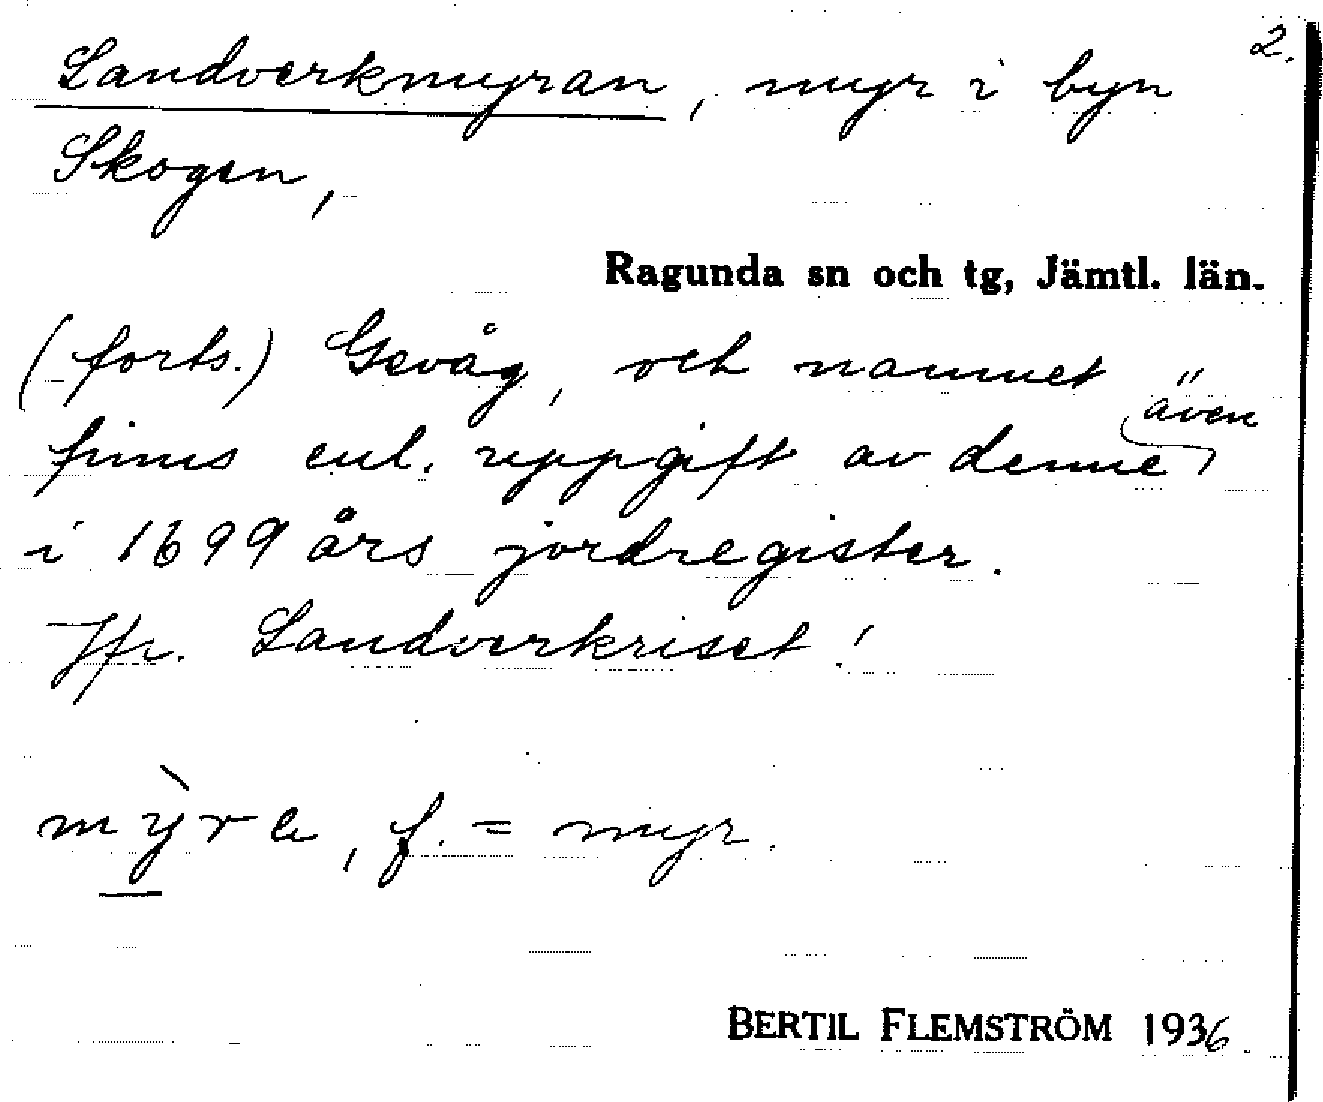 2.
Landverkmyran, myr i byn
Skogen,
Ragunda sn och tg, Jämtl. län.
(forts.) Gevåg, och namnet
finns enl. uppgift av denne även
i 1699 års jordregister.
Jfr. Landverkriset!
mỳra, f. = myr.
BERTIL FLEMSTRÖM 1936.